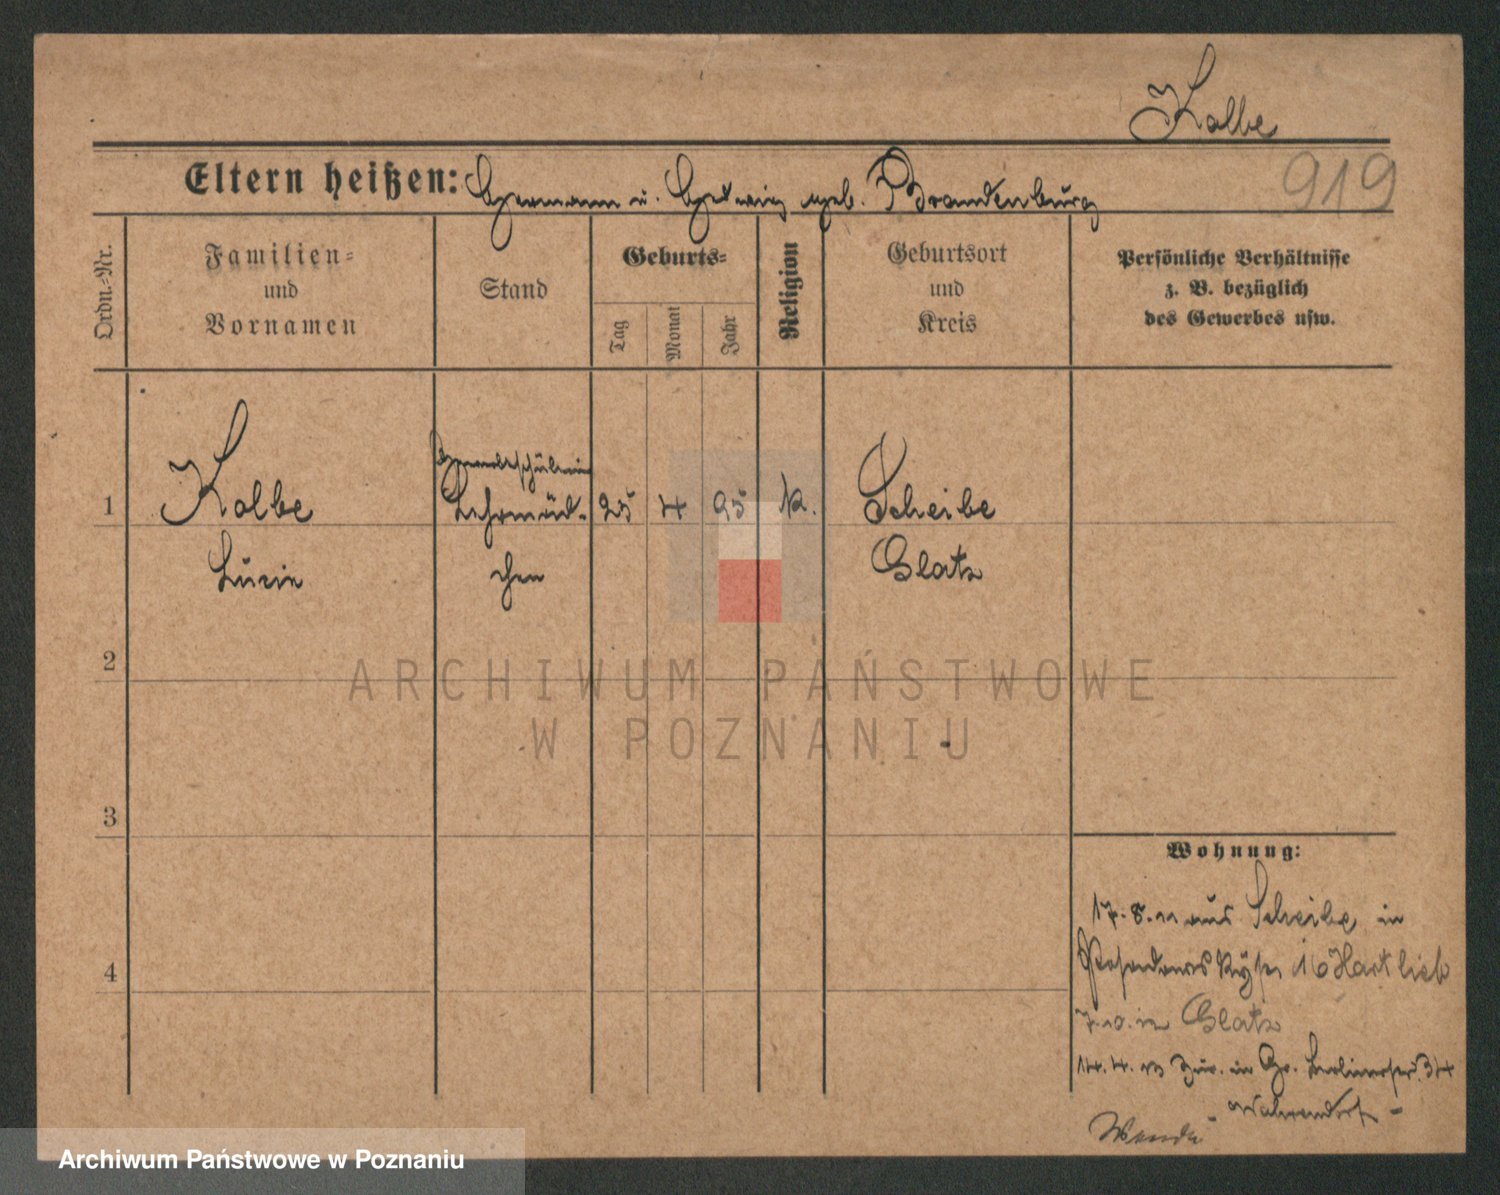 Kolbe
919
Eltern heißen: Hermann u. Hedwig geb. Brandenburg
Ordn.-Nr.
Familien-
und
Vornamen
Stand
Geburts-
Tag
Monat
Jahr
Religion
Geburtsort
und
Kreis
Persönliche Verhältnisse
z. B. bezüglich
des Gewerbes usw.
1
Kolbe
Lucie
Lehrmäd-
chen
25 4 95 k.
Scheibe
Glatz
2
3
4
Wohnung:
17. 8. 11 aus Scheibe in
16 Hartlieb
7. 10. in Glatz
14. 4. 13 zur. in Gr. Berlinerstr. 34
Wahrendorf -
Wenda
ARCHIWUM PAŃSTWOWE
W POZNANIU
Archiwum Państwowe w Poznaniu